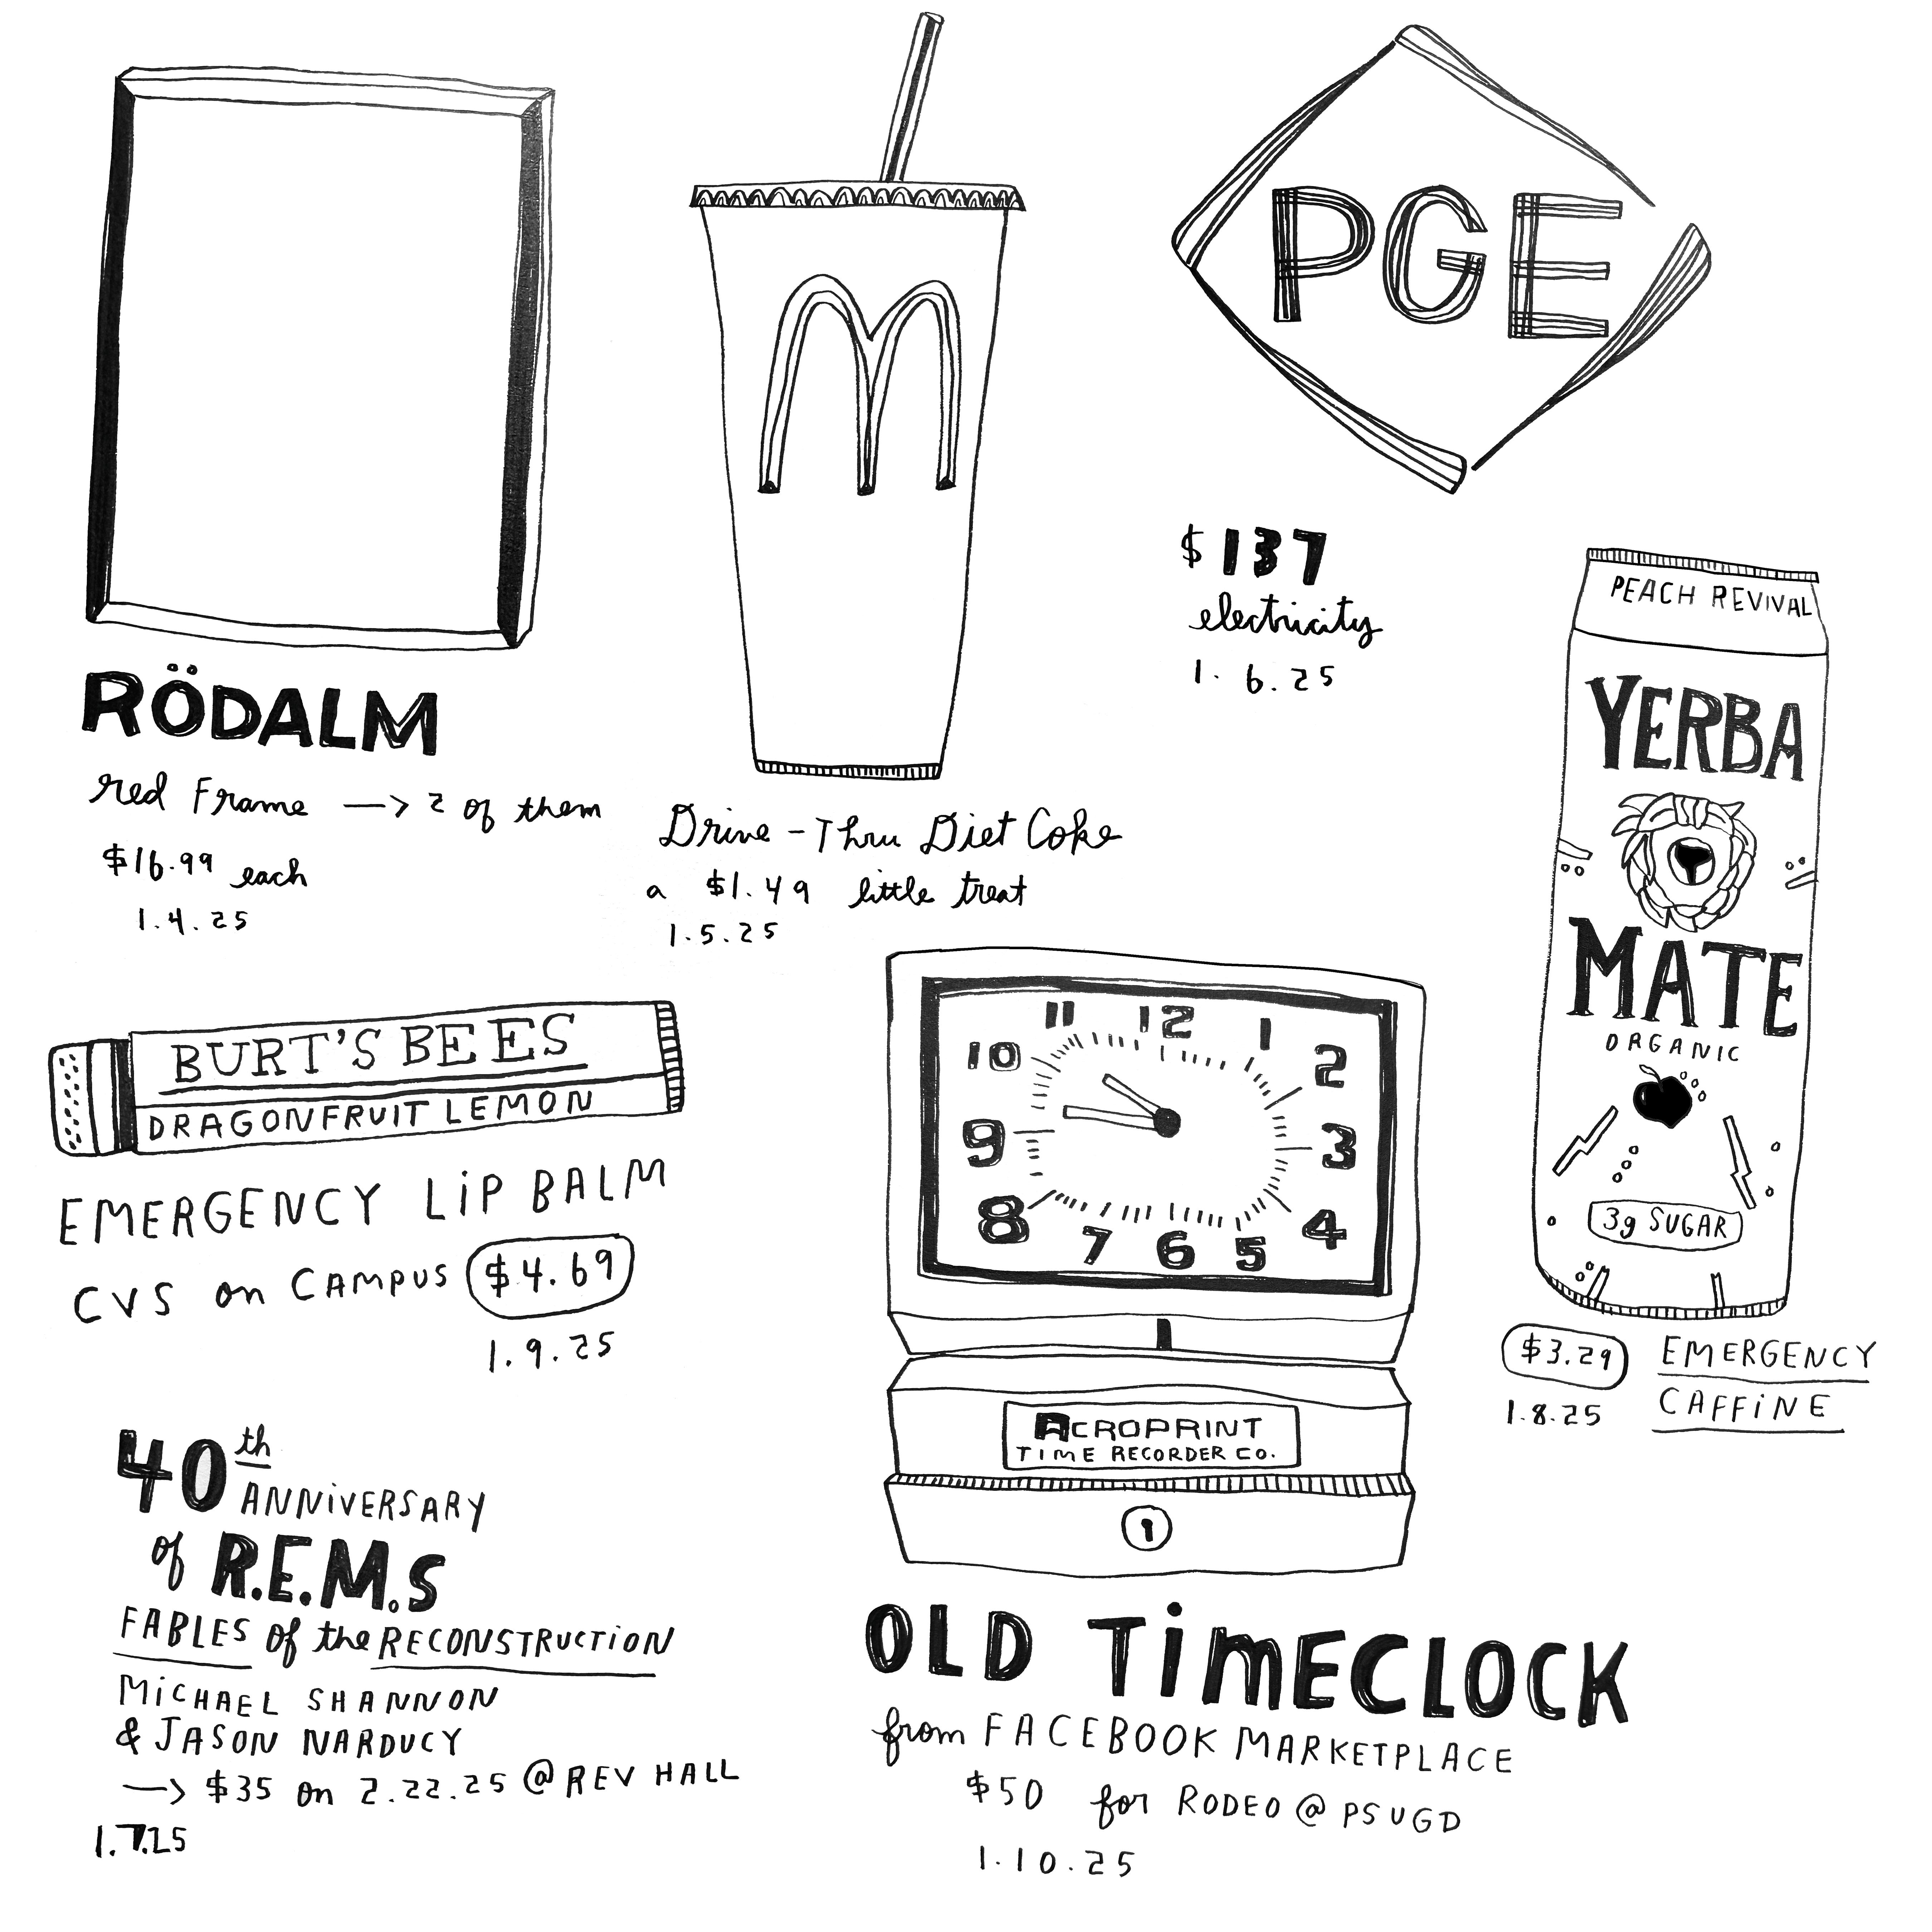 RÖDALM
red Frame —> 2 of them
$16.99 each
1.4.25
M
Drive-Thru Diet Coke
a $1.49 little treat
1.5.25
PGE
$137
electricity
1.6.25
PEACH REVIVAL
YERBA
MATE
ORGANIC
3g SUGAR
$3.29 EMERGENCY
1.8.25 CAFFiNE
BURT'S BEES
DRAGONFRUIT LEMON
EMERGENCY LiP BALM
CVS on CAMPUS $4.69
1.9.25
11 12 1
10 2
9 3
8 4
7 6 5
ACROPRINT
TIME RECORDER CO.
OLD TiMECLOCK
from FACEBOOK MARKETPLACE
$50 for RODEO @ PSUGD
1.10.25
40th
ANNiVERSARY
of R.E.M.S
FABLES of the RECONSTRUCTiON
MiCHAEL SHANNON
& JASON NARDUCY
—> $35 on 2.22.25 @ REV HALL
1.7.25